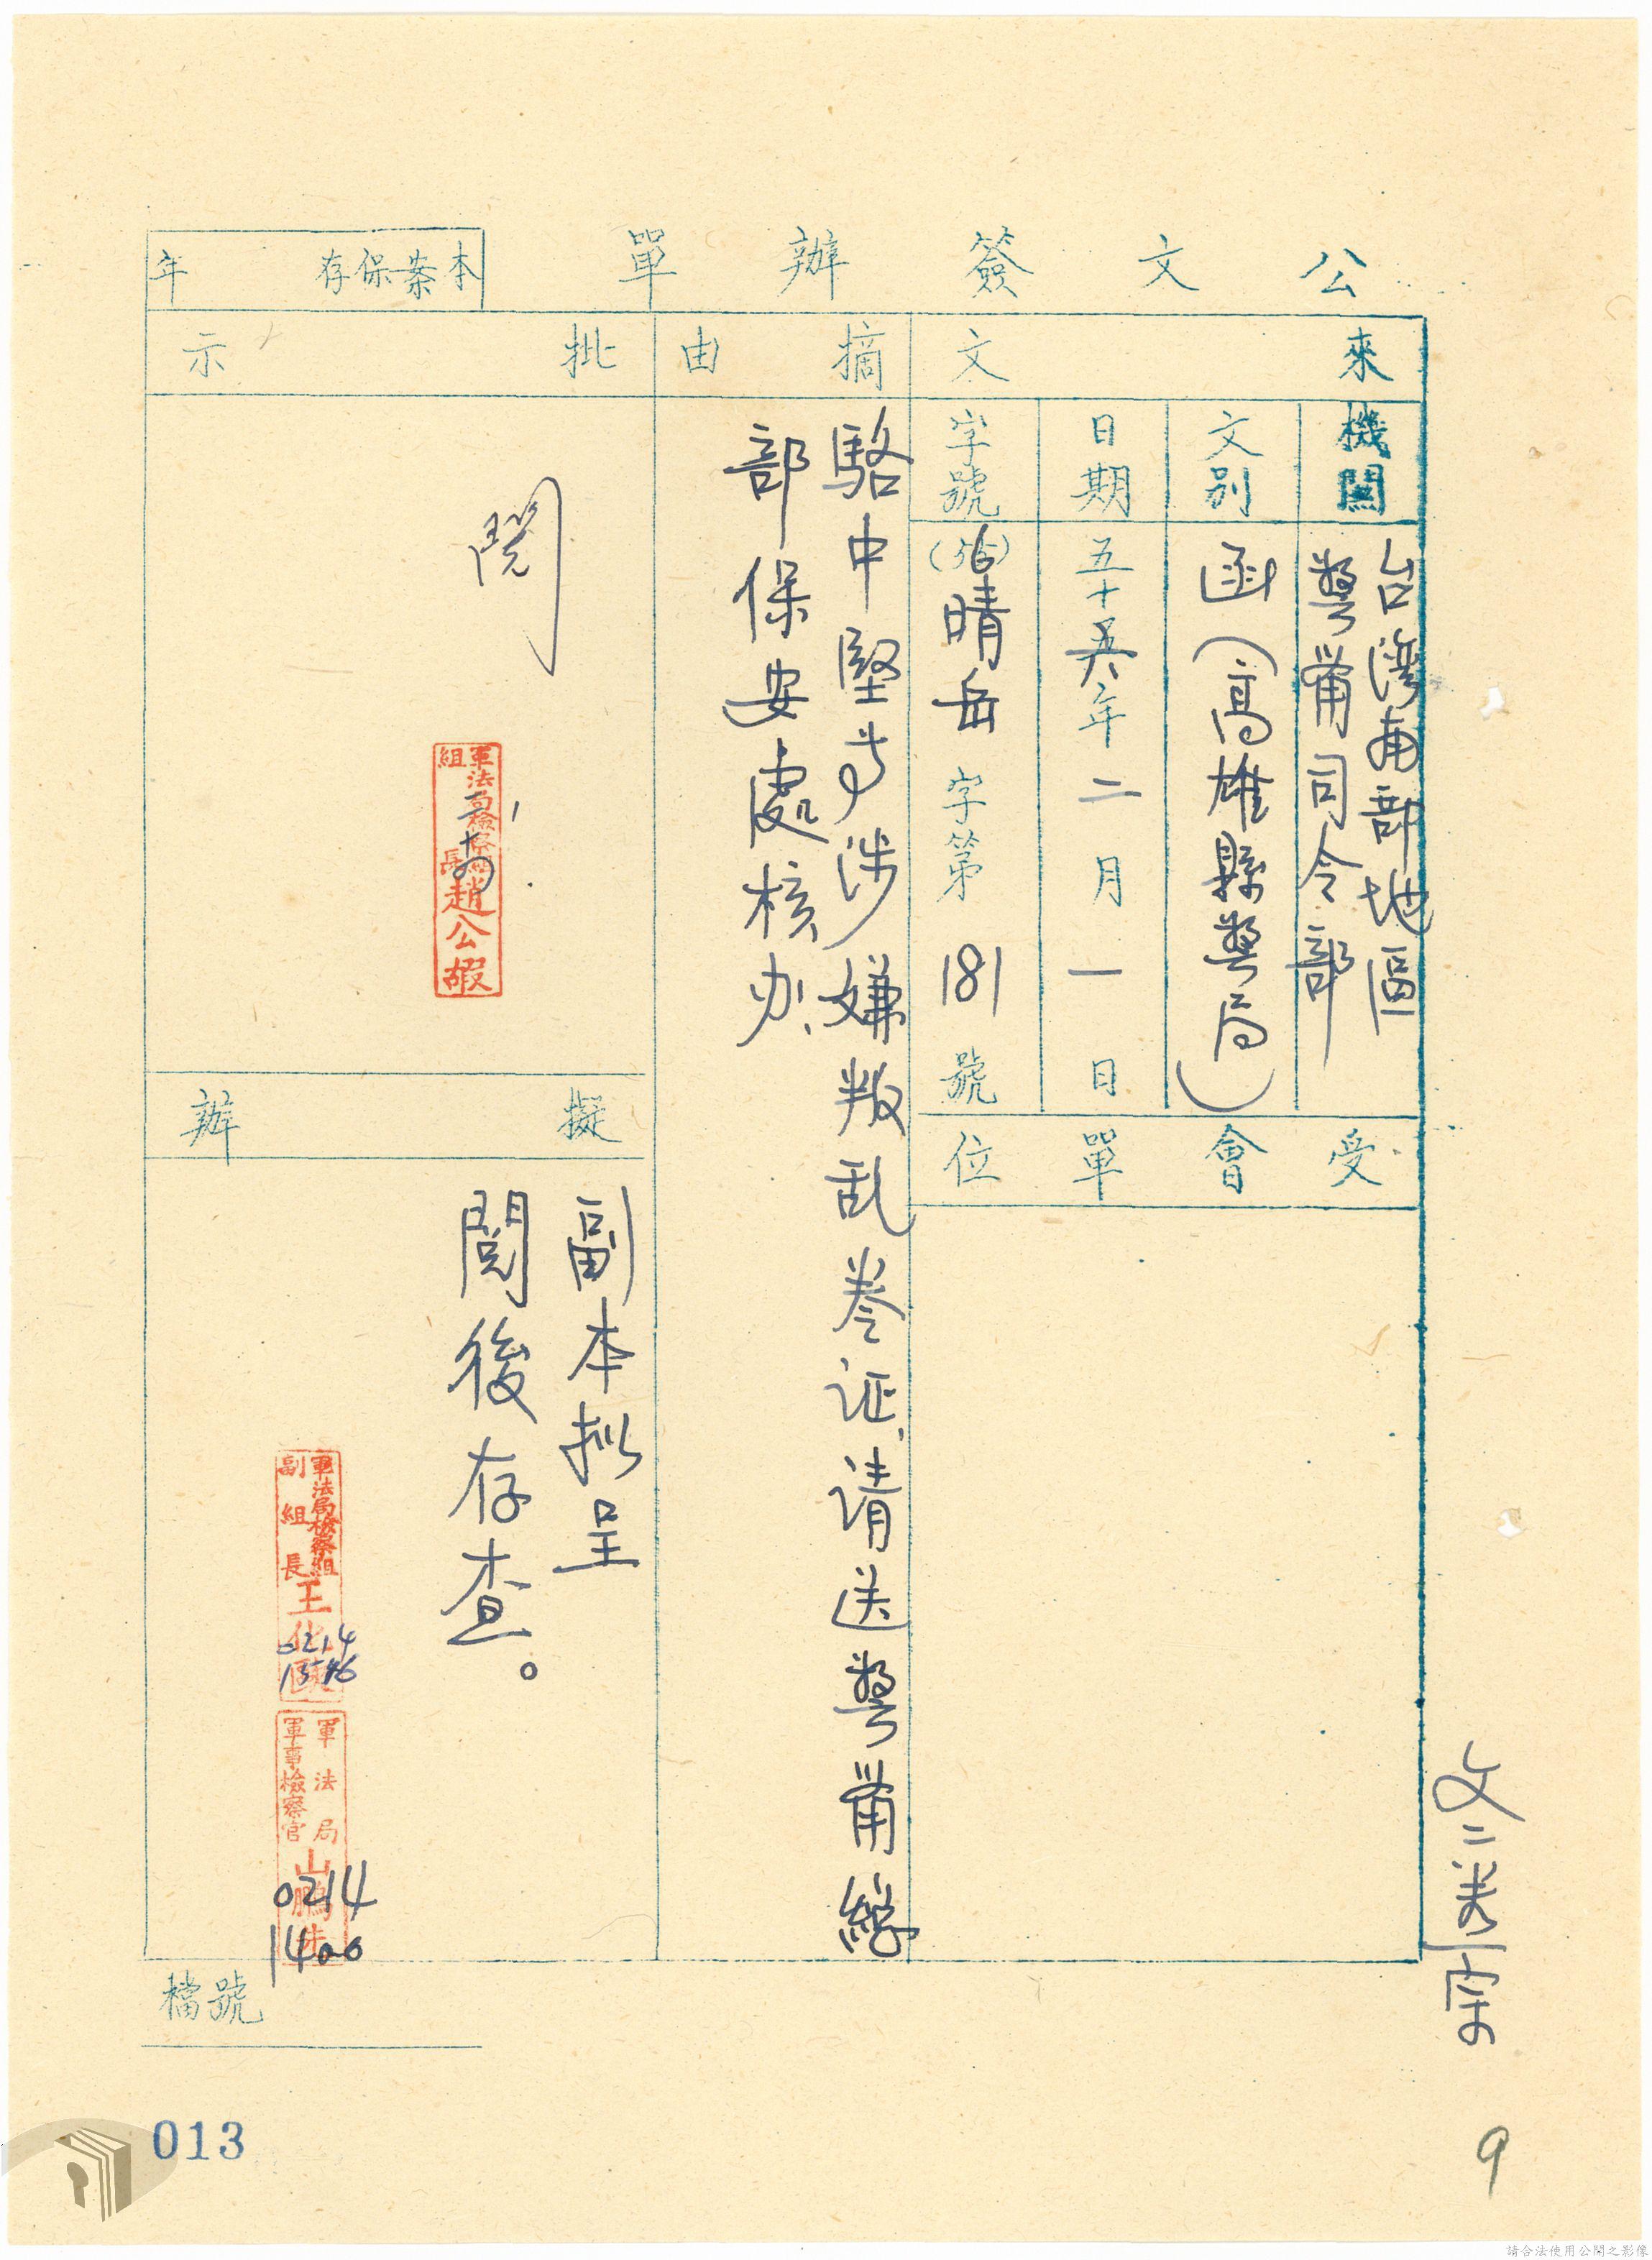 公文簽辦單
本案保存 年
來文
機關
台灣南部地區
警備司令部
文別
函(高雄縣警局)
日期
五十六年二月一日
字號
(56)晴岳字第181號
受會單位
摘由
駱中堅等涉嫌叛乱卷证,请送警備總
部保安處核办
批示
閱
軍法局檢察組
組長趙公嘏
擬辦
副本拟呈
閱後存查。
軍法局檢察組
副組長王化歐
0214
軍法局
軍事檢察官山鵬步
0214
1400
檔號
013
9
請合法使用公開之影像